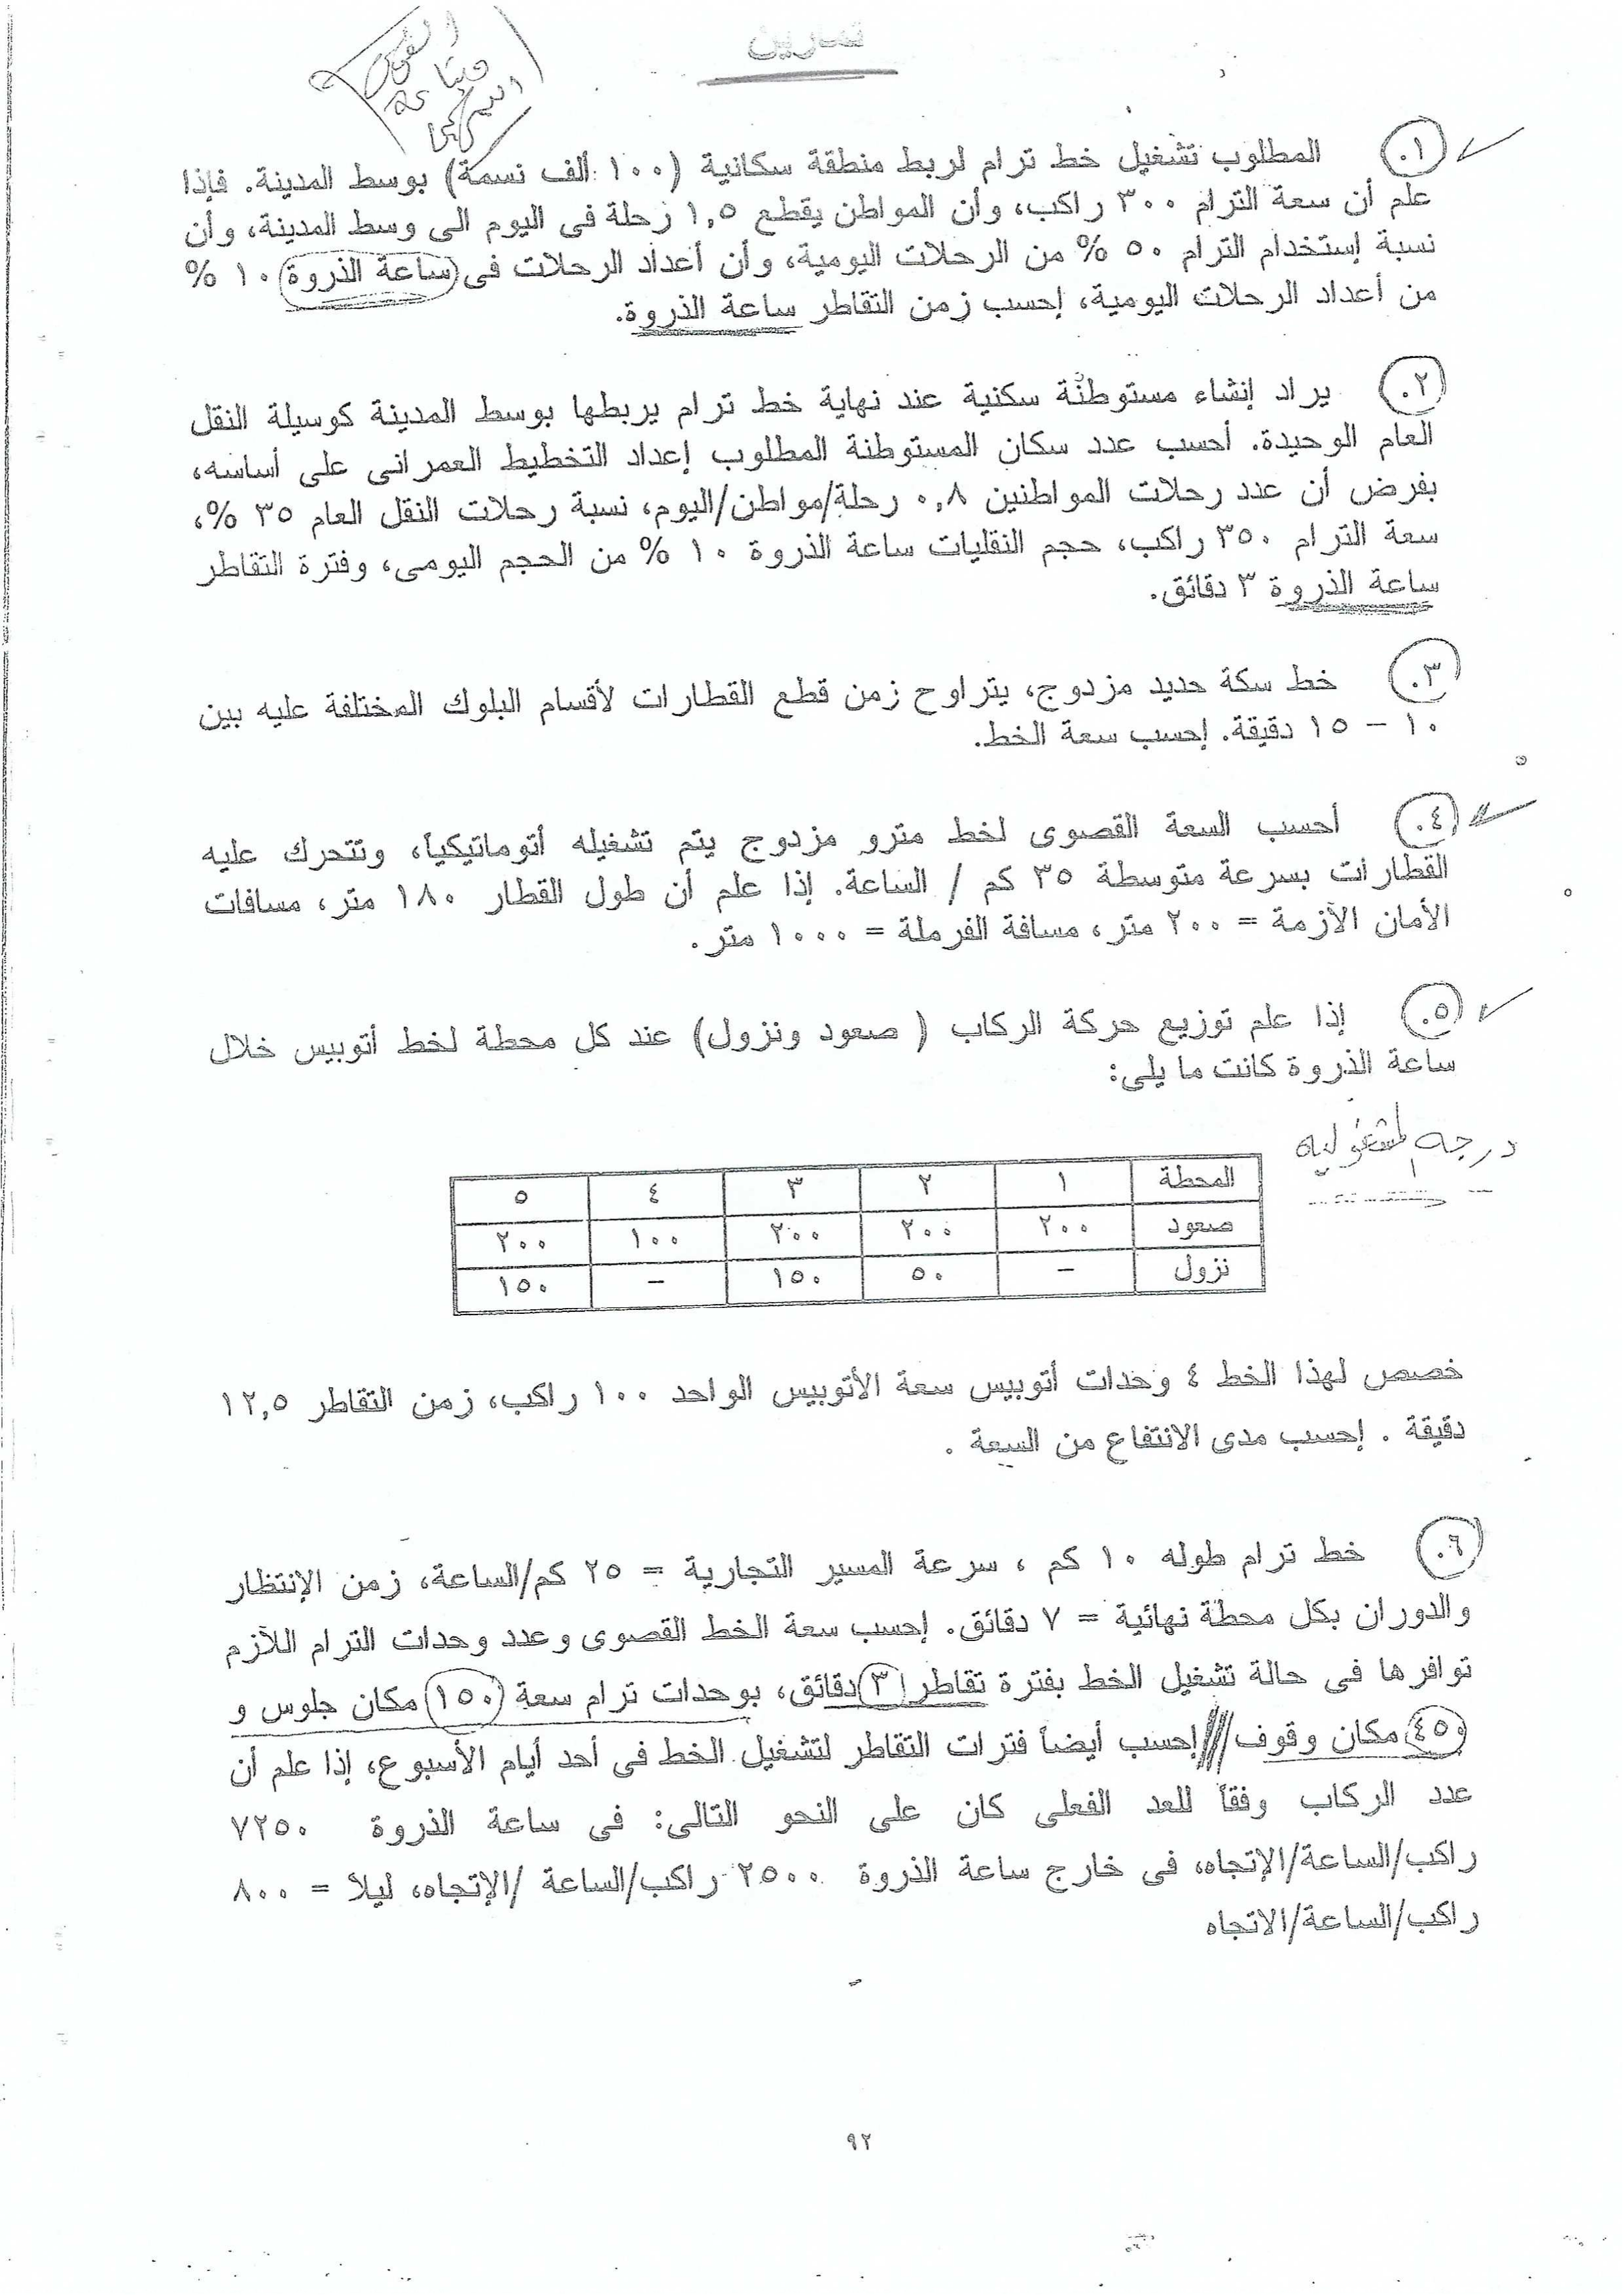 تمارين
١. المطلوب تشغيل خط ترام لربط منطقة سكانية (١٠٠ ألف نسمة) بوسط المدينة. فإذا
علم أن سعة الترام ٣٠٠ راكب، وأن المواطن يقطع ١,٥ رحلة فى اليوم الى وسط المدينة، وأن
نسبة إستخدام الترام ٥٠ % من الرحلات اليومية، وأن أعداد الرحلات فى ساعة الذروة ١٠ %
من أعداد الرحلات اليومية، إحسب زمن التقاطر ساعة الذروة.
٢. يراد إنشاء مستوطنة سكنية عند نهاية خط ترام يربطها بوسط المدينة كوسيلة النقل
العام الوحيدة. أحسب عدد سكان المستوطنة المطلوب إعداد التخطيط العمرانى على أساسه،
بفرض أن عدد رحلات المواطنين ٠,٨ رحلة/مواطن/اليوم، نسبة رحلات النقل العام ٣٥ %،
سعة الترام ٣٥٠ راكب، حجم النقليات ساعة الذروة ١٠ % من الحجم اليومى، وفترة التقاطر
ساعة الذروة ٣ دقائق.
٣. خط سكة حديد مزدوج، يتراوح زمن قطع القطارات لأقسام البلوك المختلفة عليه بين
١٠ – ١٥ دقيقة. إحسب سعة الخط.
٤. أحسب السعة القصوى لخط مترو مزدوج يتم تشغيله أتوماتيكياً، وتتحرك عليه
القطارات بسرعة متوسطة ٣٥ كم / الساعة. إذا علم أن طول القطار ١٨٠ متر، مسافات
الأمان الآزمة = ٢٠٠ متر، مسافة الفرملة = ١٠٠٠ متر.
٥. إذا علم توزيع حركة الركاب ( صعود ونزول) عند كل محطة لخط أتوبيس خلال
ساعة الذروة كانت ما يلى:
درجه المشغوليه
المحطة ١ ٢ ٣ ٤ ٥
صعود ٢٠٠ ٢٠٠ ٢٠٠ ١٠٠ ٢٠٠
نزول – ٥٠ ١٥٠ – ١٥٠
خصص لهذا الخط ٤ وحدات أتوبيس سعة الأتوبيس الواحد ١٠٠ راكب، زمن التقاطر ١٢,٥
دقيقة . إحسب مدى الانتفاع من السعة .
٦. خط ترام طوله ١٠ كم ، سرعة المسير التجارية = ٢٥ كم/الساعة، زمن الإنتظار
والدوران بكل محطة نهائية = ٧ دقائق. إحسب سعة الخط القصوى وعدد وحدات الترام اللآزم
توافرها فى حالة تشغيل الخط بفترة تقاطر ٣ دقائق، بوحدات ترام سعة ١٥٠ مكان جلوس و
٤٥٠ مكان وقوف إحسب أيضاً فترات التقاطر لتشغيل الخط فى أحد أيام الأسبوع، إذا علم أن
عدد الركاب وفقاً للعد الفعلى كان على النحو التالى: فى ساعة الذروة ٧٢٥٠
راكب/الساعة/الإتجاه، فى خارج ساعة الذروة ٢٥٠٠ راكب/الساعة /الإتجاه، ليلاً = ٨٠٠
راكب/الساعة/الاتجاه
٩٢